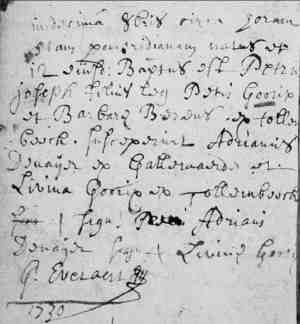 undecima 8bris circa horam
etiam pomeridianam natus et
12 eiusd: Baptus est Petrus
joseph filius leg Petri Goorix
et Barbara Berens ex tollen
beeck. susceperunt Adrianus
Denayer ex Gallemaerde et
Livina Goorix ex tollembeeck
sign. Adriani
Denayer sign + Livina Goorix
G. Everaert
1730